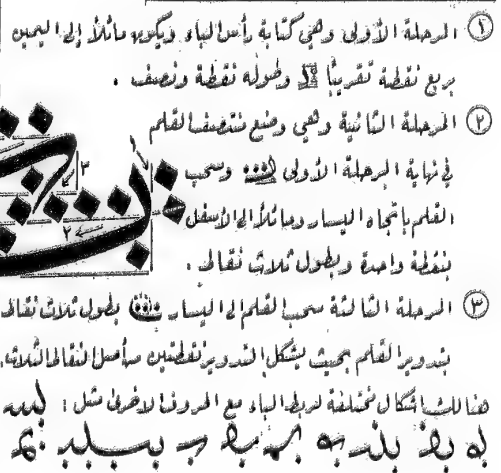 ① المرحلة الأولى وهي كتابة رأس الباء ويكون مائلاً إلى اليمين
بربع نقطة تقريباً وطوله نقطة ونصف .
② المرحلة الثانية وهي وضع منتصف القلم
في نهاية المرحلة الأولى وسحب
القلم باتجاه اليسار ومائلاً الى الأسفل
بنقطة واحدة وبطول ثلاث نقاط .
③ المرحلة الثالثة سحب القلم الى اليسار بطول ثلاث نقاط
بتدوير القلم بحيث يشكل التدوير نقطتين من أصل النقاط الثلاث .
هنالك أشكال مختلفة لربط الباء مع الحروف الاخرى مثل :
١
٣
٢